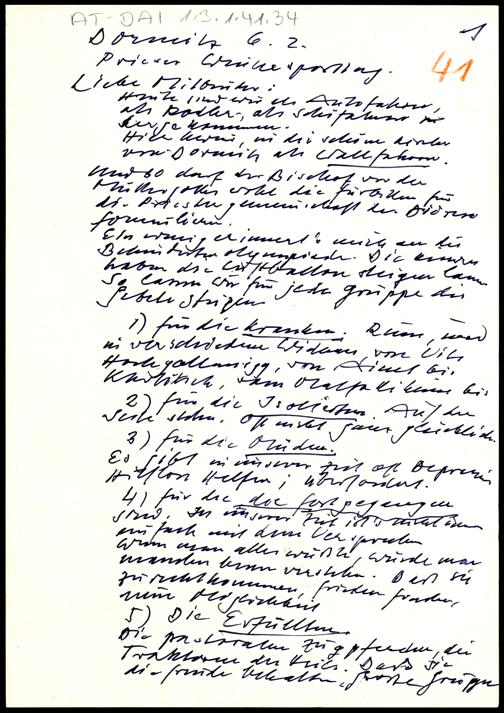 AT-DAI 1.3.1.41.34
41
Dormitz 6. 2.
Priester Wintersporttag.
Liebe Mitbrüder!
Heute sind wir als Autofahrer,
als Rodler, als Schifahrer
hergekommen.
Hier herein, in die schöne Kirche
von Dormitz als Wallfahrer.
Und so darf der Bischof vor der
Muttergottes wohl die Fürbitten für
die Priestergemeinschaft der Diözese
formulieren.
Ein wenig erinnert's mich an die
Behindertenolympiade. Die
haben die Luftballon steigen lassen
So lassen wir für jede Gruppe die
Gebete steigen
1) für die Kranken.
in verschiedenen von Vils
bis
bis
2) für die Isolierten. Auf der
Seite stehn. Oft nicht ganz glücklich.
3) für die Müden.
Es gibt in unserer Zeit oft
Hilflose Helfer, überfordert.
4) für die die fortgegangen
sind. In unserer Zeit ist's nicht
einfach mit dem Versprechen
Wenn man alles wüßte, würde man
manchen verstehen. Daß sie
zurechtkommen, Frieden finden,
neue Möglichkeit
5) Die Erfüllten.
Die pastoralen Zugpferde, die
Traktoren des Heils. Daß sie
die Freude behalten, große Gruppe